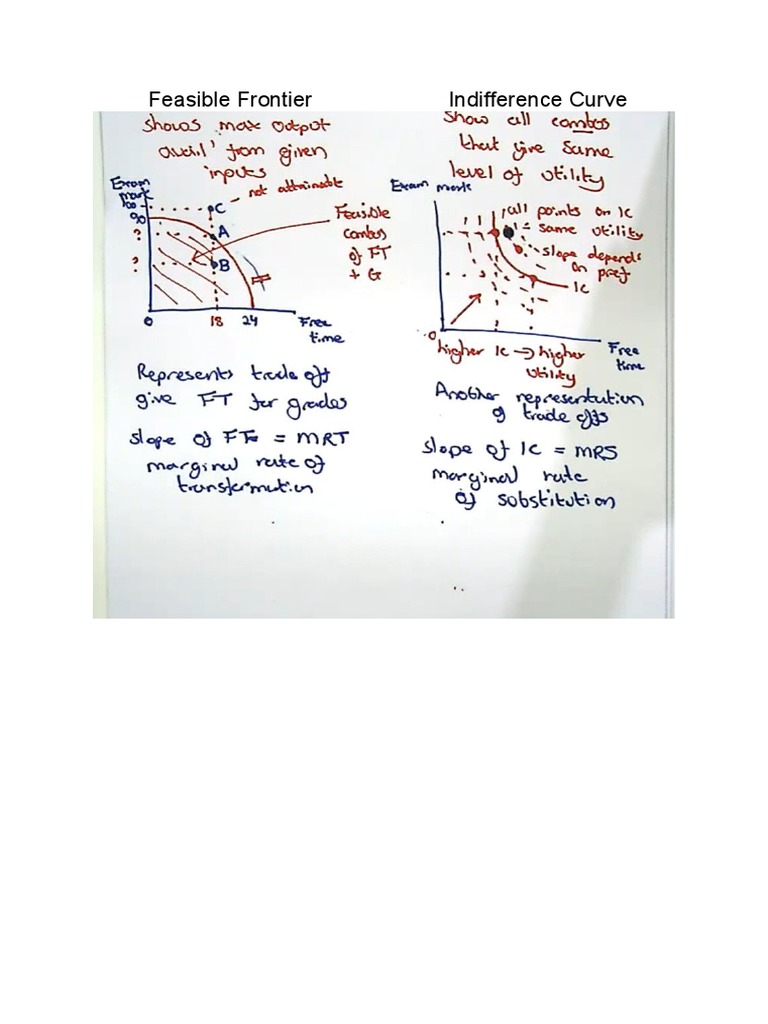 Feasible Frontier
shows max output
avail' from given
inputs
Exam
mark
100
90
?
?
C
not attainable
A
B
Feasible
combos
of FT
+ G
FF
0
18
24
Free
time
Represents trade off
give FT for grades
slope of FF = MRT
marginal rate of
transformation
Indifference Curve
Show all combos
that give same
level of utility
Exam mark
all points on IC
= same utility
slope depends
on pref
IC
0
Free
time
higher IC → higher
utility
Another representation
of trade offs
slope of IC = MRS
marginal rate
of substitution